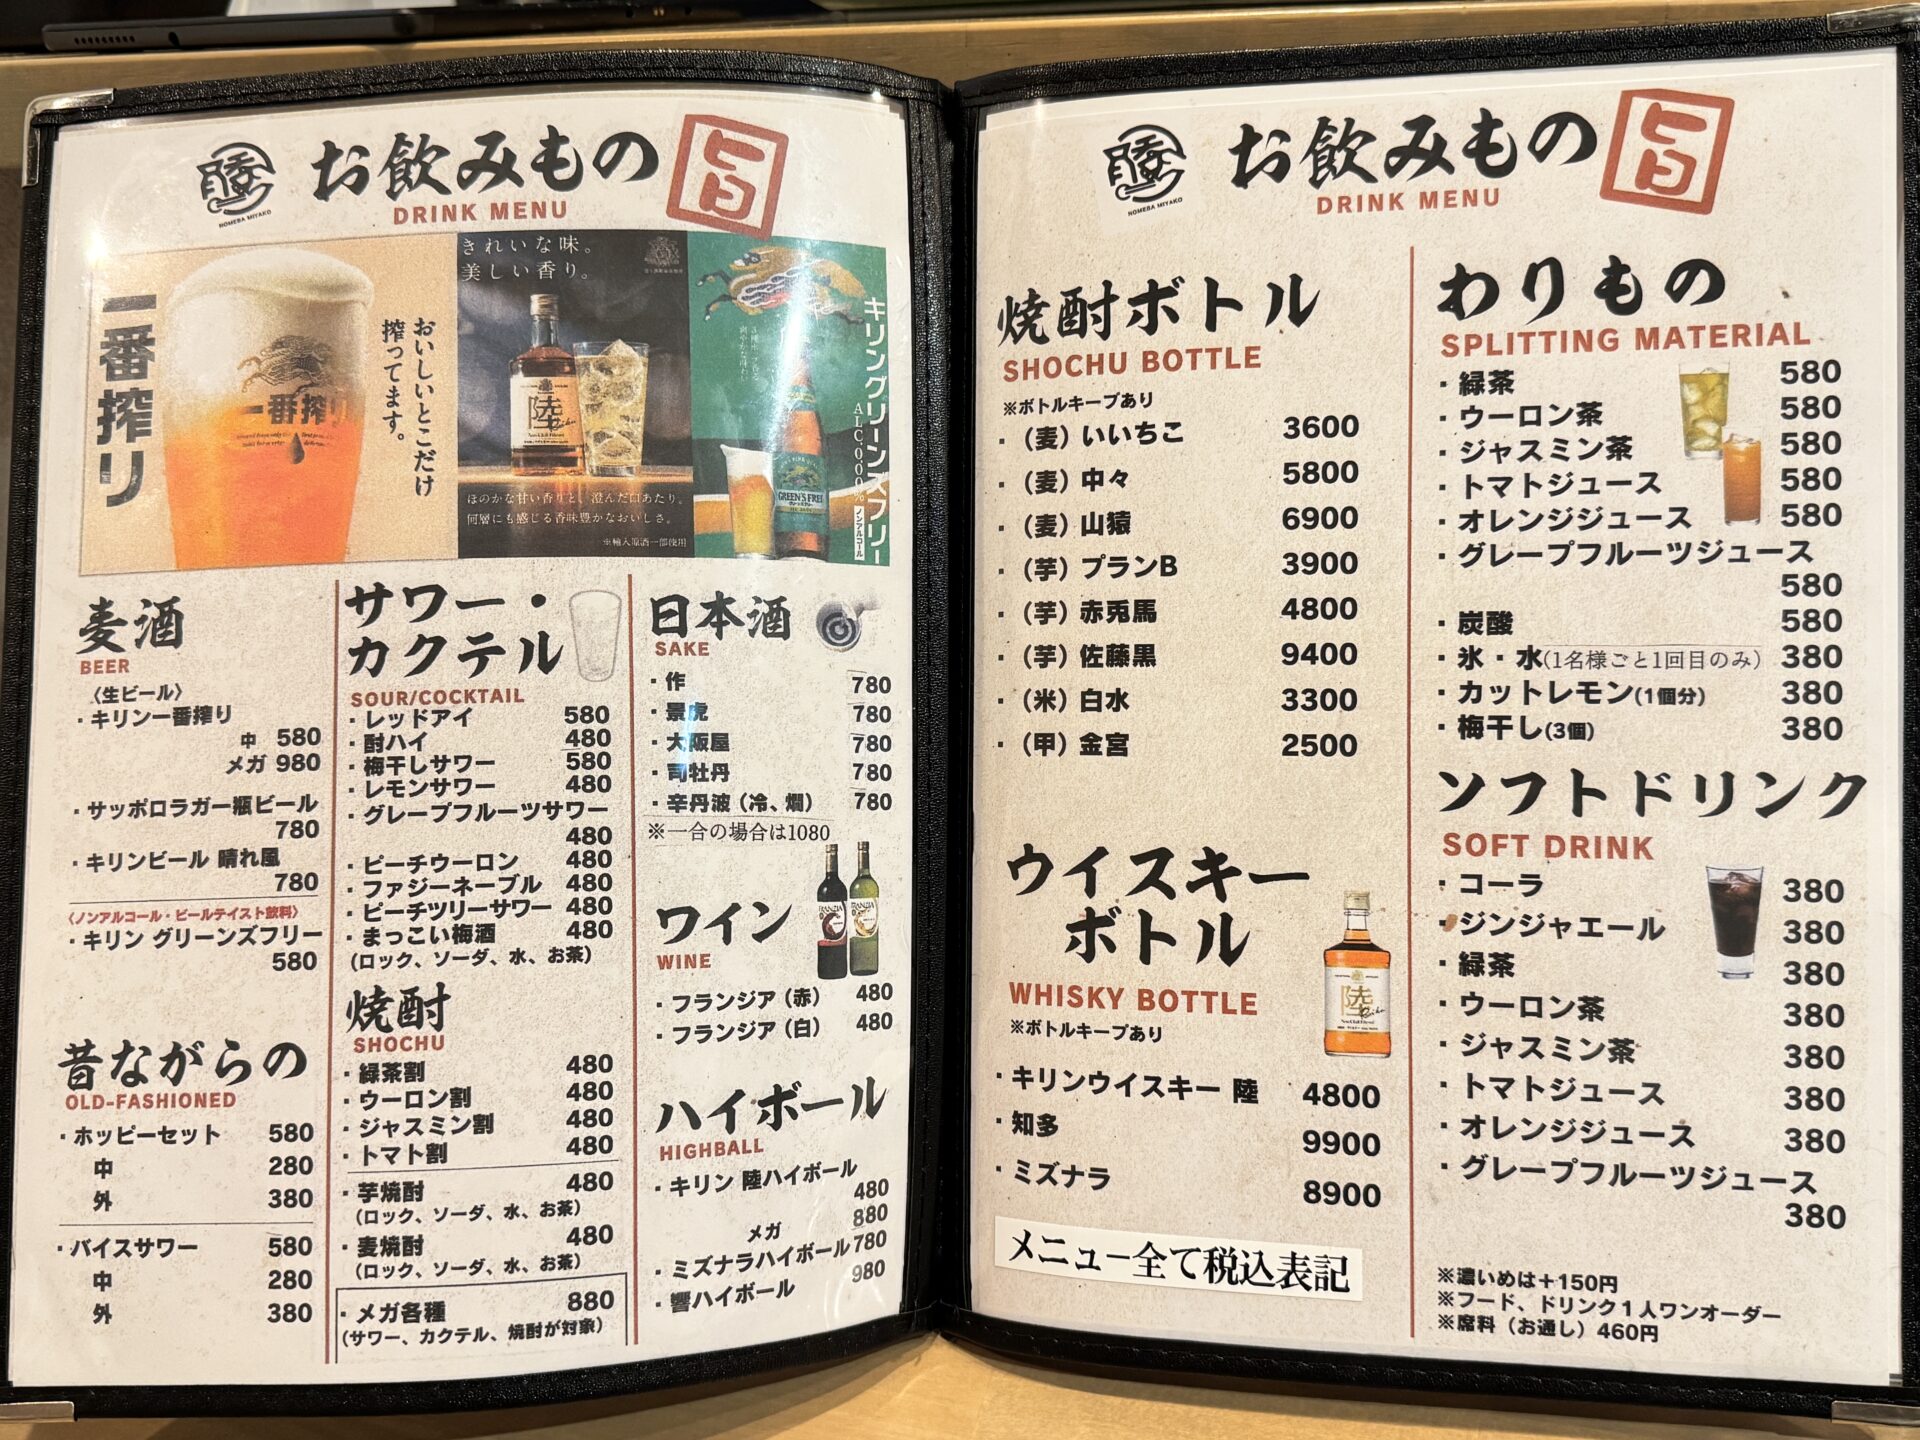 お飲みもの
旨
NOMEBA MIYAKO
DRINK MENU
一番搾り
おいしいとこだけ
搾ってます。
一番搾り
きれいな味。
美しい香り。
陸
ほのかな甘い香りと、澄んだ口あたり。
何層にも感じる香味豊かなおいしさ。
※輸入原酒一部使用
キリングリーンズフリー
ALC.0.00%
ノンアルコール
GREEN'S FREE
麦酒
BEER
〈生ビール〉
・キリン一番搾り
中 580
メガ 980
・サッポロラガー瓶ビール
780
・キリンビール 晴れ風
780
〈ノンアルコール・ビールテイスト飲料〉
・キリン グリーンズフリー
580
昔ながらの
OLD-FASHIONED
・ホッピーセット 580
中 280
外 380
・バイスサワー 580
中 280
外 380
サワー・
カクテル
SOUR/COCKTAIL
・レッドアイ 580
・酎ハイ 480
・梅干しサワー 580
・レモンサワー 480
・グレープフルーツサワー
480
・ピーチウーロン 480
・ファジーネーブル 480
・ピーチツリーサワー 480
・まっこい梅酒 480
(ロック、ソーダ、水、お茶)
焼酎
SHOCHU
・緑茶割 480
・ウーロン割 480
・ジャスミン割 480
・トマト割 480
・芋焼酎 480
(ロック、ソーダ、水、お茶)
・麦焼酎 480
(ロック、ソーダ、水、お茶)
・メガ各種 880
(サワー、カクテル、焼酎が対象)
日本酒
SAKE
・作 780
・景虎 780
・大阪屋 780
・司牡丹 780
・辛丹波（冷、燗） 780
※一合の場合は1080
ワイン
WINE
・フランジア（赤） 480
・フランジア（白） 480
ハイボール
HIGHBALL
・キリン 陸ハイボール
480
メガ 880
・ミズナラハイボール 780
・響ハイボール 980
お飲みもの
旨
NOMEBA MIYAKO
DRINK MENU
焼酎ボトル
SHOCHU BOTTLE
※ボトルキープあり
・（麦）いいちこ 3600
・（麦）中々 5800
・（麦）山猿 6900
・（芋）プランB 3900
・（芋）赤兎馬 4800
・（芋）佐藤黒 9400
・（米）白水 3300
・（甲）金宮 2500
ウイスキー
ボトル
WHISKY BOTTLE
※ボトルキープあり
陸
・キリンウイスキー 陸 4800
・知多 9900
・ミズナラ 8900
メニュー全て税込表記
わりもの
SPLITTING MATERIAL
・緑茶 580
・ウーロン茶 580
・ジャスミン茶 580
・トマトジュース 580
・オレンジジュース 580
・グレープフルーツジュース
580
・炭酸 580
・氷・水(1名様ごと1回目のみ) 380
・カットレモン(1個分) 380
・梅干し(3個) 380
ソフトドリンク
SOFT DRINK
・コーラ 380
・ジンジャエール 380
・緑茶 380
・ウーロン茶 380
・ジャスミン茶 380
・トマトジュース 380
・オレンジジュース 380
・グレープフルーツジュース
380
※濃いめは＋150円
※フード、ドリンク１人ワンオーダー
※席料（お通し）460円